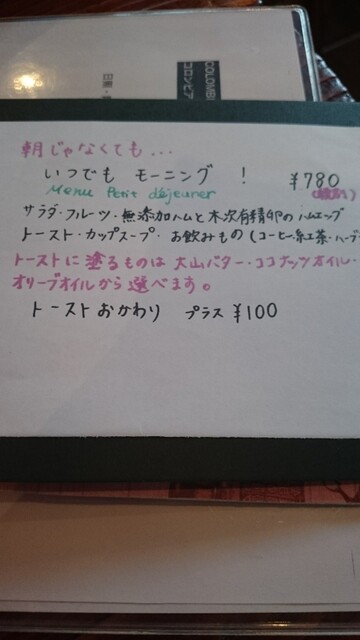 COLOMBI
コロンビア
朝じゃなくても...
いつでも モーニング ! ¥780
Menu Petit déjeuner
サラダ・フルーツ・無添加ハムと木次有精卵のハムエッグ
トースト・カップスープ・お飲みもの(コーヒー・紅茶・ハーブ
トーストに塗るものは 大山バター・ココナッツオイル・
オリーブオイルから選べます。
トーストおかわり プラス ¥100